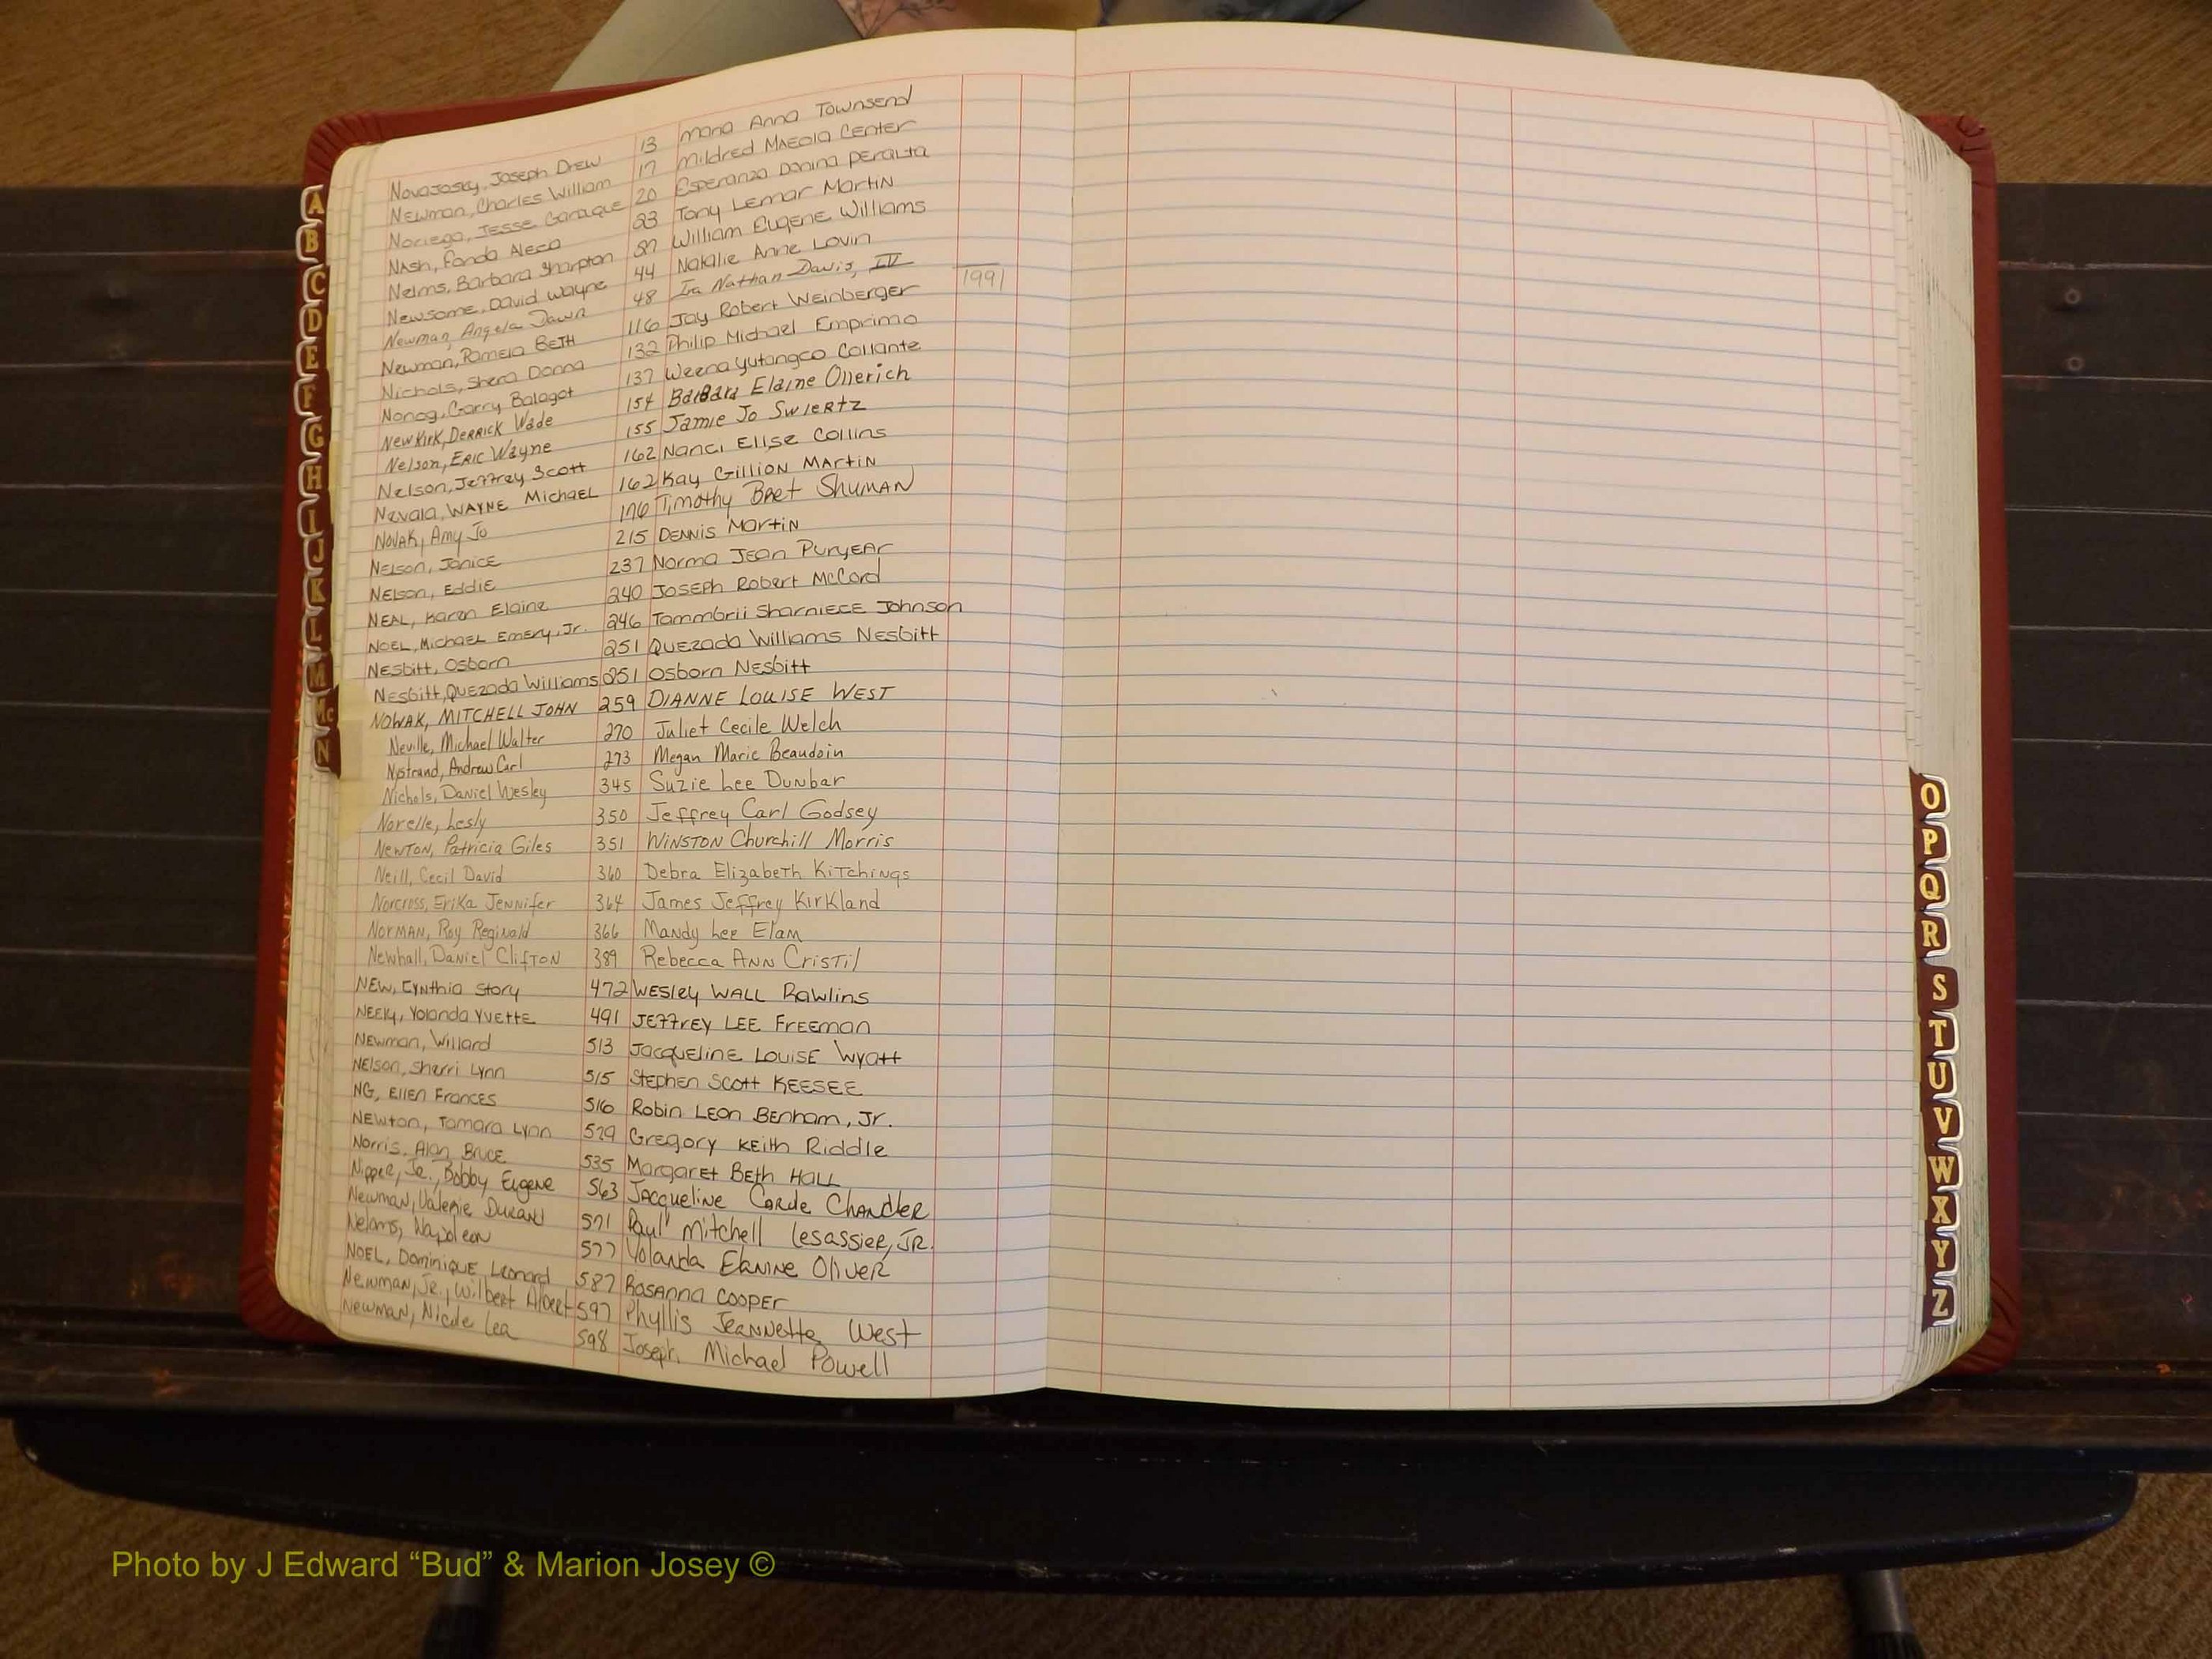 Novajosky, Joseph Drew 13 Mona Anna Townsend
Newman, Charles William 17 Mildred Maeola Center
Noriega, Jesse Garaque 20 Esperanza Donina Peralta
Nash, Fonda Aleca 23 Tony Lemar Martin
Nelms, Barbara Sharpton 37 William Eugene Williams
Newsome, David Wayne 44 Natalie Anne Lovin
Newman, Angela Dawn 48 Ira Nathan Davis, IV 1991
Newman, Pamela Beth 116 Jay Robert Weinberger
Nichols, Shera Donna 132 Philip Michael Emprimo
Nonog, Garry Balagot 137 Weena Yutangco Collante
Newkirk, Derrick Wade 154 Barbara Elaine Ollerich
Nelson, Eric Wayne 155 Jamie Jo Swiertz
Nelson, Jeffrey Scott 162 Nanci Elise Collins
Nevala, Wayne Michael 162 Kay Gillion Martin
Novak, Amy Jo 176 Timothy Bret Shuman
Nelson, Janice 215 Dennis Martin
Nelson, Eddie 237 Norma Jean Puryear
Neal, Karen Elaine 240 Joseph Robert McCord
Noel, Michael Emery, Jr. 246 Tammbrii Sharniece Johnson
Nesbitt, Osborn 251 Quezada Williams Nesbitt
Nesbitt, Quezada Williams 251 Osborn Nesbitt
NOWAK, MITCHELL JOHN 259 DIANNE LOUISE WEST
Neville, Michael Walter 270 Juliet Cecile Welch
Nystrand, Andrew Carl 273 Megan Marie Beaudoin
Nichols, Daniel Wesley 345 Suzie Lee Dunbar
Norelle, Lesly 350 Jeffrey Carl Godsey
Newton, Patricia Giles 351 Winston Churchill Morris
Neill, Cecil David 360 Debra Elizabeth Kitchings
Norcross, Erika Jennifer 364 James Jeffrey Kirkland
Norman, Roy Reginald 366 Mandy Lee Elam
Newhall, Daniel Clifton 389 Rebecca Ann Cristil
New, Cynthia Story 472 Wesley Wall Rawlins
Neely, Yolanda Yvette 491 Jeffrey Lee Freeman
Newman, Willard 513 Jacqueline Louise Wyatt
Nelson, Sherri Lynn 515 Stephen Scott Keesee
Ng, Ellen Frances 516 Robin Leon Benham, Jr.
Newton, Tamara Lynn 529 Gregory Keith Riddle
Norris, Alan Bruce 535 Margaret Beth Hall
Nipper, Jr., Bobby Eugene 563 Jacqueline Carole Chandler
Newman, Valerie Durant 571 Paul Mitchell Lesassier, Jr.
Nelams, Napoleon 577 Yolanda Oliver
Noel, Dominique Leonard 587 Rosanna Cooper
Newman, Jr., Wilbert Albert 597 Phyllis Jeannette West
Newman, Nicole Lea 598 Joseph Michael Powell
A
B
C
D
E
F
G
H
I
J
K
L
M
Mc
N
O
P
Q
R
S
T
U
V
W
X
Y
Z
Photo by J Edward “Bud” & Marion Josey ©